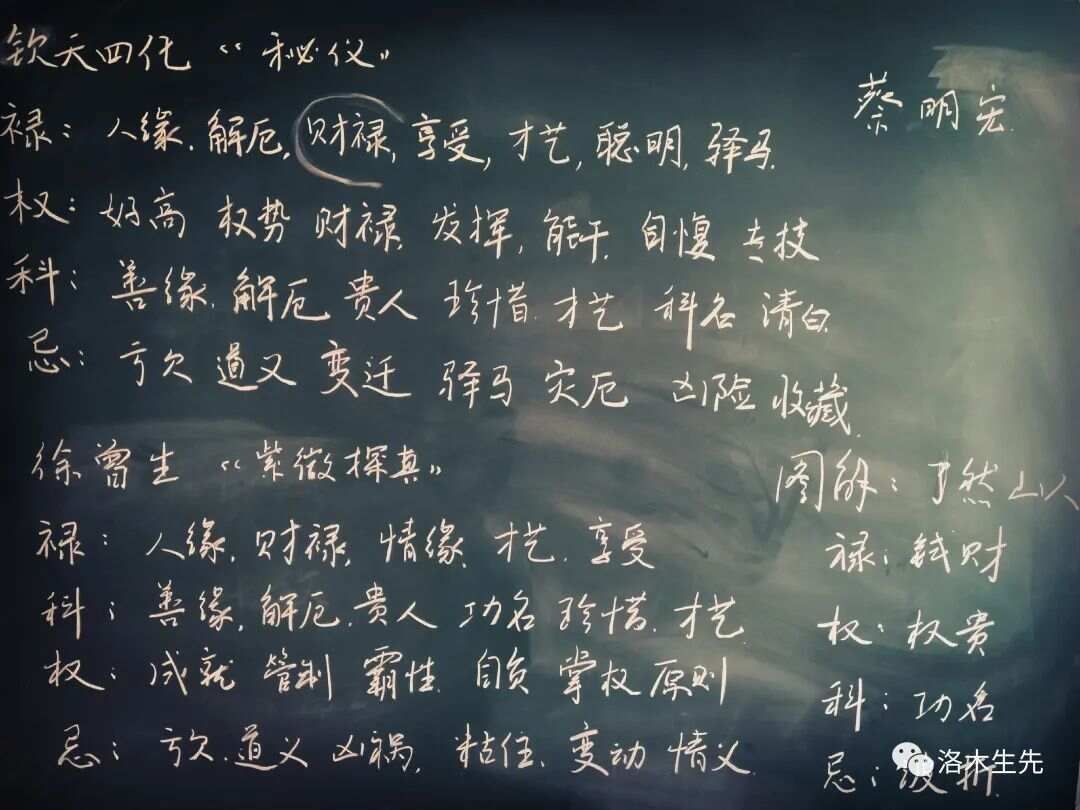 钦天四化《秘仪》
蔡明宏
禄：人缘.解厄,财禄,享受,才艺,聪明,驿马
权：好高 权势 财禄.发挥,能干.自愎 专技
科：善缘.解厄 贵人 珍惜.才艺 科名 清白
忌：亏欠 道义 变迁 驿马 灾厄 凶险 收藏
徐曾生《紫微探真》
禄：人缘,财禄,情缘.才艺.享受
科：善缘,解厄.贵人 功名 珍惜.才艺
权：成就 管制 霸性 自负 掌权 原则
忌：亏欠.道义 凶祸,粘住.变动 情义
图解：了然山人
禄：钱财
权：权贵
科：功名
忌：波折
洛木生先